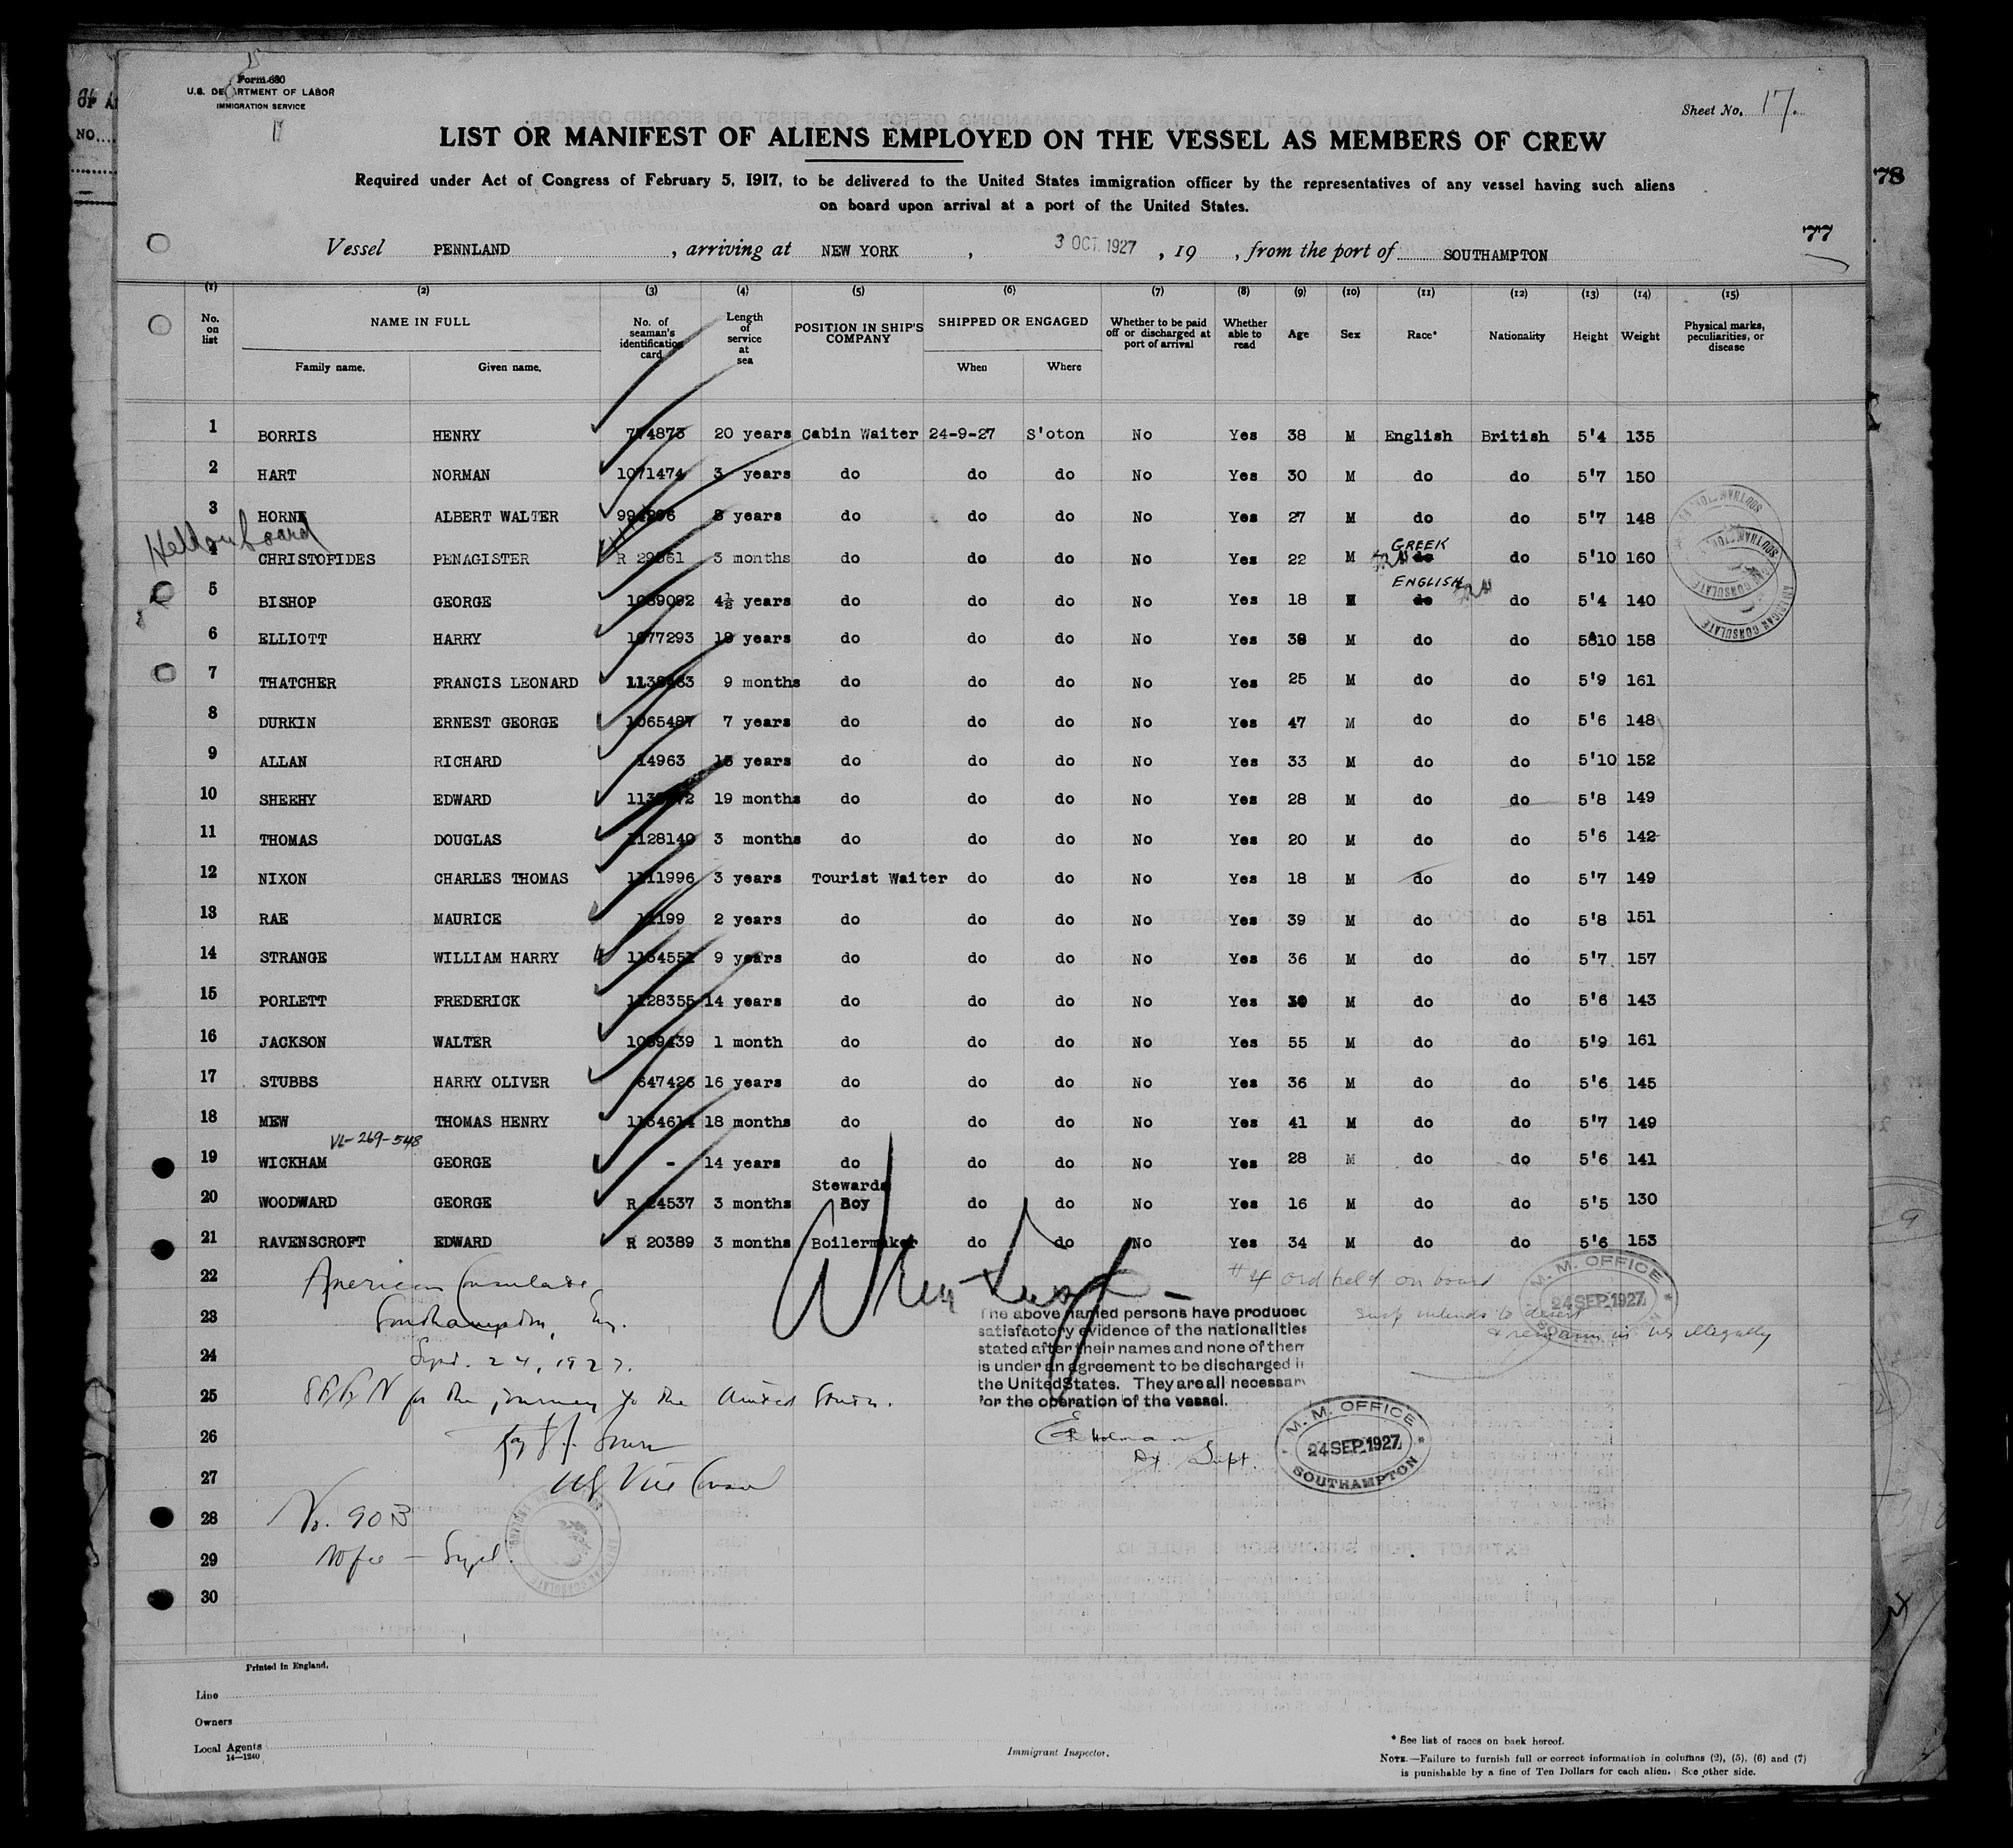 Form 680
U.S. DEPARTMENT OF LABOR
IMMIGRATION SERVICE
Sheet No. 17.
LIST OR MANIFEST OF ALIENS EMPLOYED ON THE VESSEL AS MEMBERS OF CREW
Required under Act of Congress of February 5, 1917, to be delivered to the United States immigration officer by the representatives of any vessel having such aliens
on board upon arrival at a port of the United States.
78
77
Vessel PENNLAND, arriving at NEW YORK, 3 OCT 1927, 19 , from the port of SOUTHAMPTON
(1) (2) (3) (4) (5) (6) (7) (8) (9) (10) (11) (12) (13) (14) (15)
No. on list NAME IN FULL No. of seaman's identification card Length of service at sea POSITION IN SHIP'S COMPANY SHIPPED OR ENGAGED Whether to be paid off or discharged at port of arrival Whether able to read Age Sex Race* Nationality Height Weight Physical marks, peculiarities, or disease
Family name. Given name. When Where
1 BORRIS HENRY 774873 20 years Cabin Waiter 24-9-27 S'oton No Yes 38 M English British 5'4 135
2 HART NORMAN 1071474 3 years do do do No Yes 30 M do do 5'7 150
3 HORNE ALBERT WALTER 8 years do do do No Yes 27 M do do 5'7 148
Held on board
GREEK
4 CHRISTOFIDES PENAGISTER R 29361 3 months do do do No Yes 22 M do do 5'10 160
ENGLISH
5 BISHOP GEORGE 1089092 4½ years do do do No Yes 18 M do do 5'4 140
6 ELLIOTT HARRY 1077293 18 years do do do No Yes 38 M do do 5'10 158
7 THATCHER FRANCIS LEONARD 9 months do do do No Yes 25 M do do 5'9 161
8 DURKIN ERNEST GEORGE 1065487 7 years do do do No Yes 47 M do do 5'6 148
9 ALLAN RICHARD 14963 15 years do do do No Yes 33 M do do 5'10 152
10 SHEEHY EDWARD 19 months do do do No Yes 28 M do do 5'8 149
11 THOMAS DOUGLAS 1128149 3 months do do do No Yes 20 M do do 5'6 142
12 NIXON CHARLES THOMAS 1111996 3 years Tourist Waiter do do No Yes 18 M do do 5'7 149
13 RAE MAURICE 11199 2 years do do do No Yes 39 M do do 5'8 151
14 STRANGE WILLIAM HARRY 1154551 9 years do do do No Yes 36 M do do 5'7 157
15 PORLETT FREDERICK 1128355 14 years do do do No Yes 30 M do do 5'6 143
16 JACKSON WALTER 1089439 1 month do do do No Yes 55 M do do 5'9 161
17 STUBBS HARRY OLIVER 647426 16 years do do do No Yes 36 M do do 5'6 145
18 MEW THOMAS HENRY 1154614 18 months do do do No Yes 41 M do do 5'7 149
VL-269-548
19 WICKHAM GEORGE - 14 years do do do No Yes 28 M do do 5'6 141
20 WOODWARD GEORGE R 24537 3 months Stewards Boy do do No Yes 16 M do do 5'5 130
21 RAVENSCROFT EDWARD R 20389 3 months Boilermaker do do No Yes 34 M do do 5'6 153
22 American Consulate
#4 ord held on board
23 Southampton, Eng.
susp intends to desert
& remain in US illegally
24 Sept. 24, 1927.
25 for the journey to the United States.
26
27 US Vice Consul
28 No. 903
29 No fee - Seal.
30
The above named persons have produced
satisfactory evidence of the nationalities
stated after their names and none of them
is under an agreement to be discharged in
the United States. They are all necessary
for the operation of the vessel.
Holman
Dy. Supt.
M. M. OFFICE
24 SEP. 1927
SOUTHAMPTON
M. M. OFFICE
24 SEP 1927
SOUTHAMPTON
AMERICAN CONSULATE
SOUTHAMPTON
AMERICAN CONSULATE
Printed in England.
Line
Owners
Local Agents
14—1240
Immigrant Inspector.
* See list of races on back hereof.
NOTE.—Failure to furnish full or correct information in columns (2), (5), (6) and (7)
is punishable by a fine of Ten Dollars for each alien. See other side.